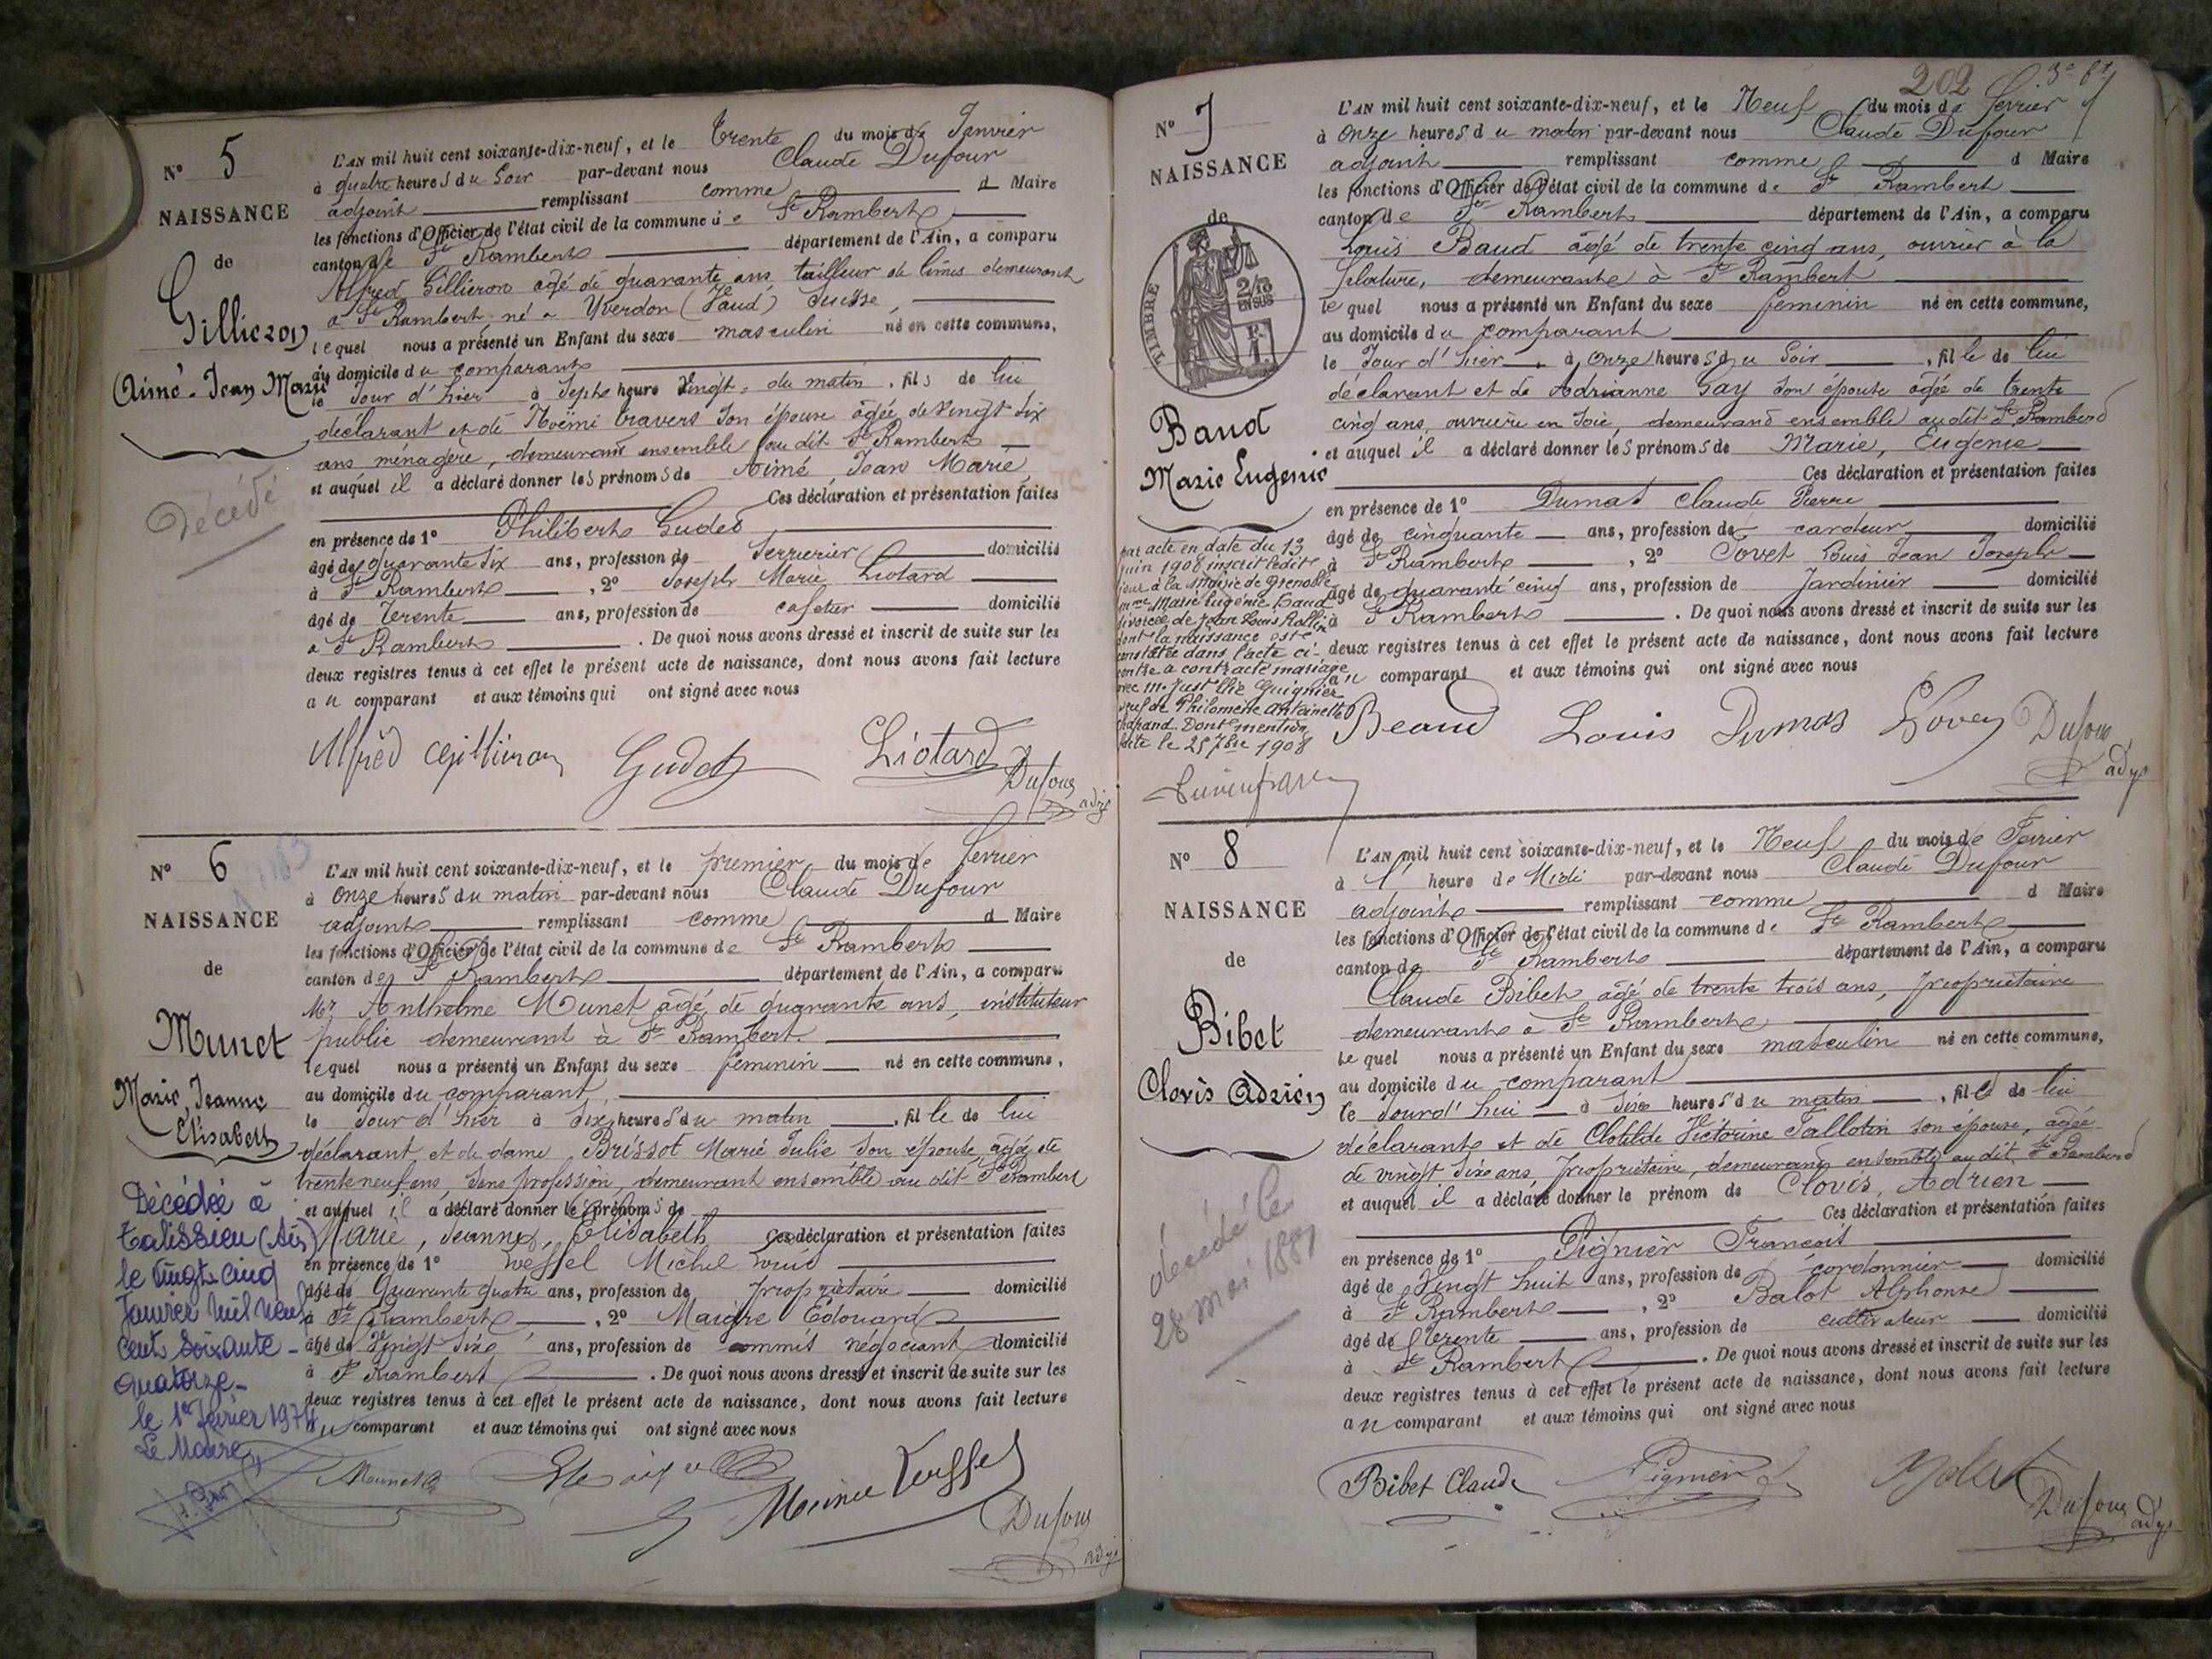 N° 5
NAISSANCE
de
Gillieron
Aimé-Jean Marie
Décédé
L'AN mil huit cent soixante-dix-neuf, et le Trente du mois de Janvier
à quatre heures du Soir par-devant nous Claude Dufour
adjoint remplissant comme d Maire
les fonctions d'Officier de l'état civil de la commune de St Rambert
canton de St Rambert département de l'Ain, a comparu
Alfred Gilliéron agé de quarante ans tailleur de limes demeurant
à St Rambert né à Yverdon (Vaud) Suisse,
lequel nous a présenté un Enfant du sexe masculin né en cette commune,
au domicile du comparant
le Jour d'hier à Sept heure Vingt du matin, fils de lui
déclarant et de Noëmi Travers son épouse âgée de Vingt six
ans ménagère, demeurant ensemble au dit St Rambert
et auquel il a déclaré donner les prénoms de Aimé Jean Marie
Ces déclaration et présentation faites
en présence de 1° Philibert Gudet
âgé de quarante six ans, profession de Serrurier domicilié
à St Rambert, 2° Joseph Marie Liotard
âgé de Trente ans, profession de cafetier domicilié
à St Rambert. De quoi nous avons dressé et inscrit de suite sur les
deux registres tenus à cet effet le présent acte de naissance, dont nous avons fait lecture
au comparant et aux témoins qui ont signé avec nous
Alfrêd Gilliéron Liotard
Dufour
adj
N° 6
NAISSANCE
de
Munet
Marie, Jeanne
Elisabeth
Décédée à
Talissieu (Ain)
le vingt-cinq
Janvier mil neuf
cent soixante-
quatorze-
le 1er février 1974
Le Maire
L'AN mil huit cent soixante-dix-neuf, et le premier du mois de fevrier
à onze heures du matin par-devant nous Claude Dufour
adjoint remplissant comme d Maire
les fonctions d'Officier de l'état civil de la commune de St Rambert
canton de St Rambert département de l'Ain, a comparu
Mr Anthelme Munet agé de quarante ans, instituteur
public demeurant à St Rambert.
lequel nous a présenté un Enfant du sexe féminin né en cette commune,
au domicile du comparant,
le Jour d'hier à Six heures du matin, fille de lui
déclarant et de dame Brissot Marie Julie son épouse, agée de
trente neuf ans, sans profession, demeurant ensemble au dit St Rambert
et auquel il a déclaré donner les prénoms de
Marie, Jeanne, Elisabeth Ces déclaration et présentation faites
en présence de 1° Michel
âgé de Quarante quatre ans, profession de propriétaire domicilié
à St Rambert, 2° Maigre Edouard
âgé de Vingt Six ans, profession de commis négociant domicilié
à St Rambert. De quoi nous avons dressé et inscrit de suite sur les
deux registres tenus à cet effet le présent acte de naissance, dont nous avons fait lecture
au comparant et aux témoins qui ont signé avec nous
Munet
Dufour
adj
202
N° 7
NAISSANCE
de
TIMBRE
2/10
EN SUS
Baud
Marie Eugénie
par acte en date du 13
juin 1908 inscrit ledit
jour à la mairie de Grenoble
mme Marie Eugénie Baud
divorcée de Jean Louis Rollin
dont la naissance est
constatée dans l'acte ci-
contre a contracté mariage
avec M. Just Elie Guignier
veuf de Philomène Antoinette
Dont mention
faite le 25 7bre 1908
L'AN mil huit cent soixante-dix-neuf, et le Neuf du mois de fevrier
à onze heures du matin par-devant nous Claude Dufour
adjoint remplissant comme d Maire
les fonctions d'Officier de l'état civil de la commune de St Rambert
canton de St Rambert département de l'Ain, a comparu
Louis Baud âgé de trente cinq ans, ouvrier à la
filature, demeurant à St Rambert
lequel nous a présenté un Enfant du sexe feminin né en cette commune,
au domicile du comparant
le Jour d'hier, à onze heures du Soir, fille de lui
déclarant et de Adrianne Gay son épouse âgée de trente
cinq ans, ouvrière en Soie, demeurand ensemble au dit St Rambert
et auquel il a déclaré donner les prénoms de Marie, Eugénie
Ces déclaration et présentation faites
en présence de 1° Dumas Claude Pierre
âgé de cinquante ans, profession de cardeur domicilié
à St Rambert, 2° Jovet Louis Jean Joseph
âgé de quarante cinq ans, profession de Jardinier domicilié
à St Rambert. De quoi nous avons dressé et inscrit de suite sur les
deux registres tenus à cet effet le présent acte de naissance, dont nous avons fait lecture
au comparant et aux témoins qui ont signé avec nous
Beaud Louis Dumas Dufour
adj
N° 8
NAISSANCE
de
Bibet
Clovis Adrien
décédé le
28 mai 1881
L'AN mil huit cent soixante-dix-neuf, et le Neuf du mois de Fevrier
à 1 heure de Midi par-devant nous Claude Dufour
adjoint remplissant comme d Maire
les fonctions d'Officier de l'état civil de la commune de St Rambert
canton de St Rambert département de l'Ain, a comparu
Claude Bibet âgé de trente trois ans, propriétaire
demeurant à St Rambert
lequel nous a présenté un Enfant du sexe masculin né en cette commune,
au domicile du comparant
le Jourd'hui à Six heures du matin, fils de lui
déclarant et de Clotilde Victorine Tallotin son épouse, agée
de vingt Six ans, propriétaire, demeurand ensemble au dit St Rambert
et auquel il a déclaré donner le prénom de Clovis, Adrien
Ces déclaration et présentation faites
en présence de 1° Pignier François
âgé de Vingt huit ans, profession de cordonnier domicilié
à St Rambert, 2° Balot Alphonse
âgé de Trente ans, profession de cultivateur domicilié
à St Rambert. De quoi nous avons dressé et inscrit de suite sur les
deux registres tenus à cet effet le présent acte de naissance, dont nous avons fait lecture
au comparant et aux témoins qui ont signé avec nous
Bibet Claude Pignier
Dufour
adj